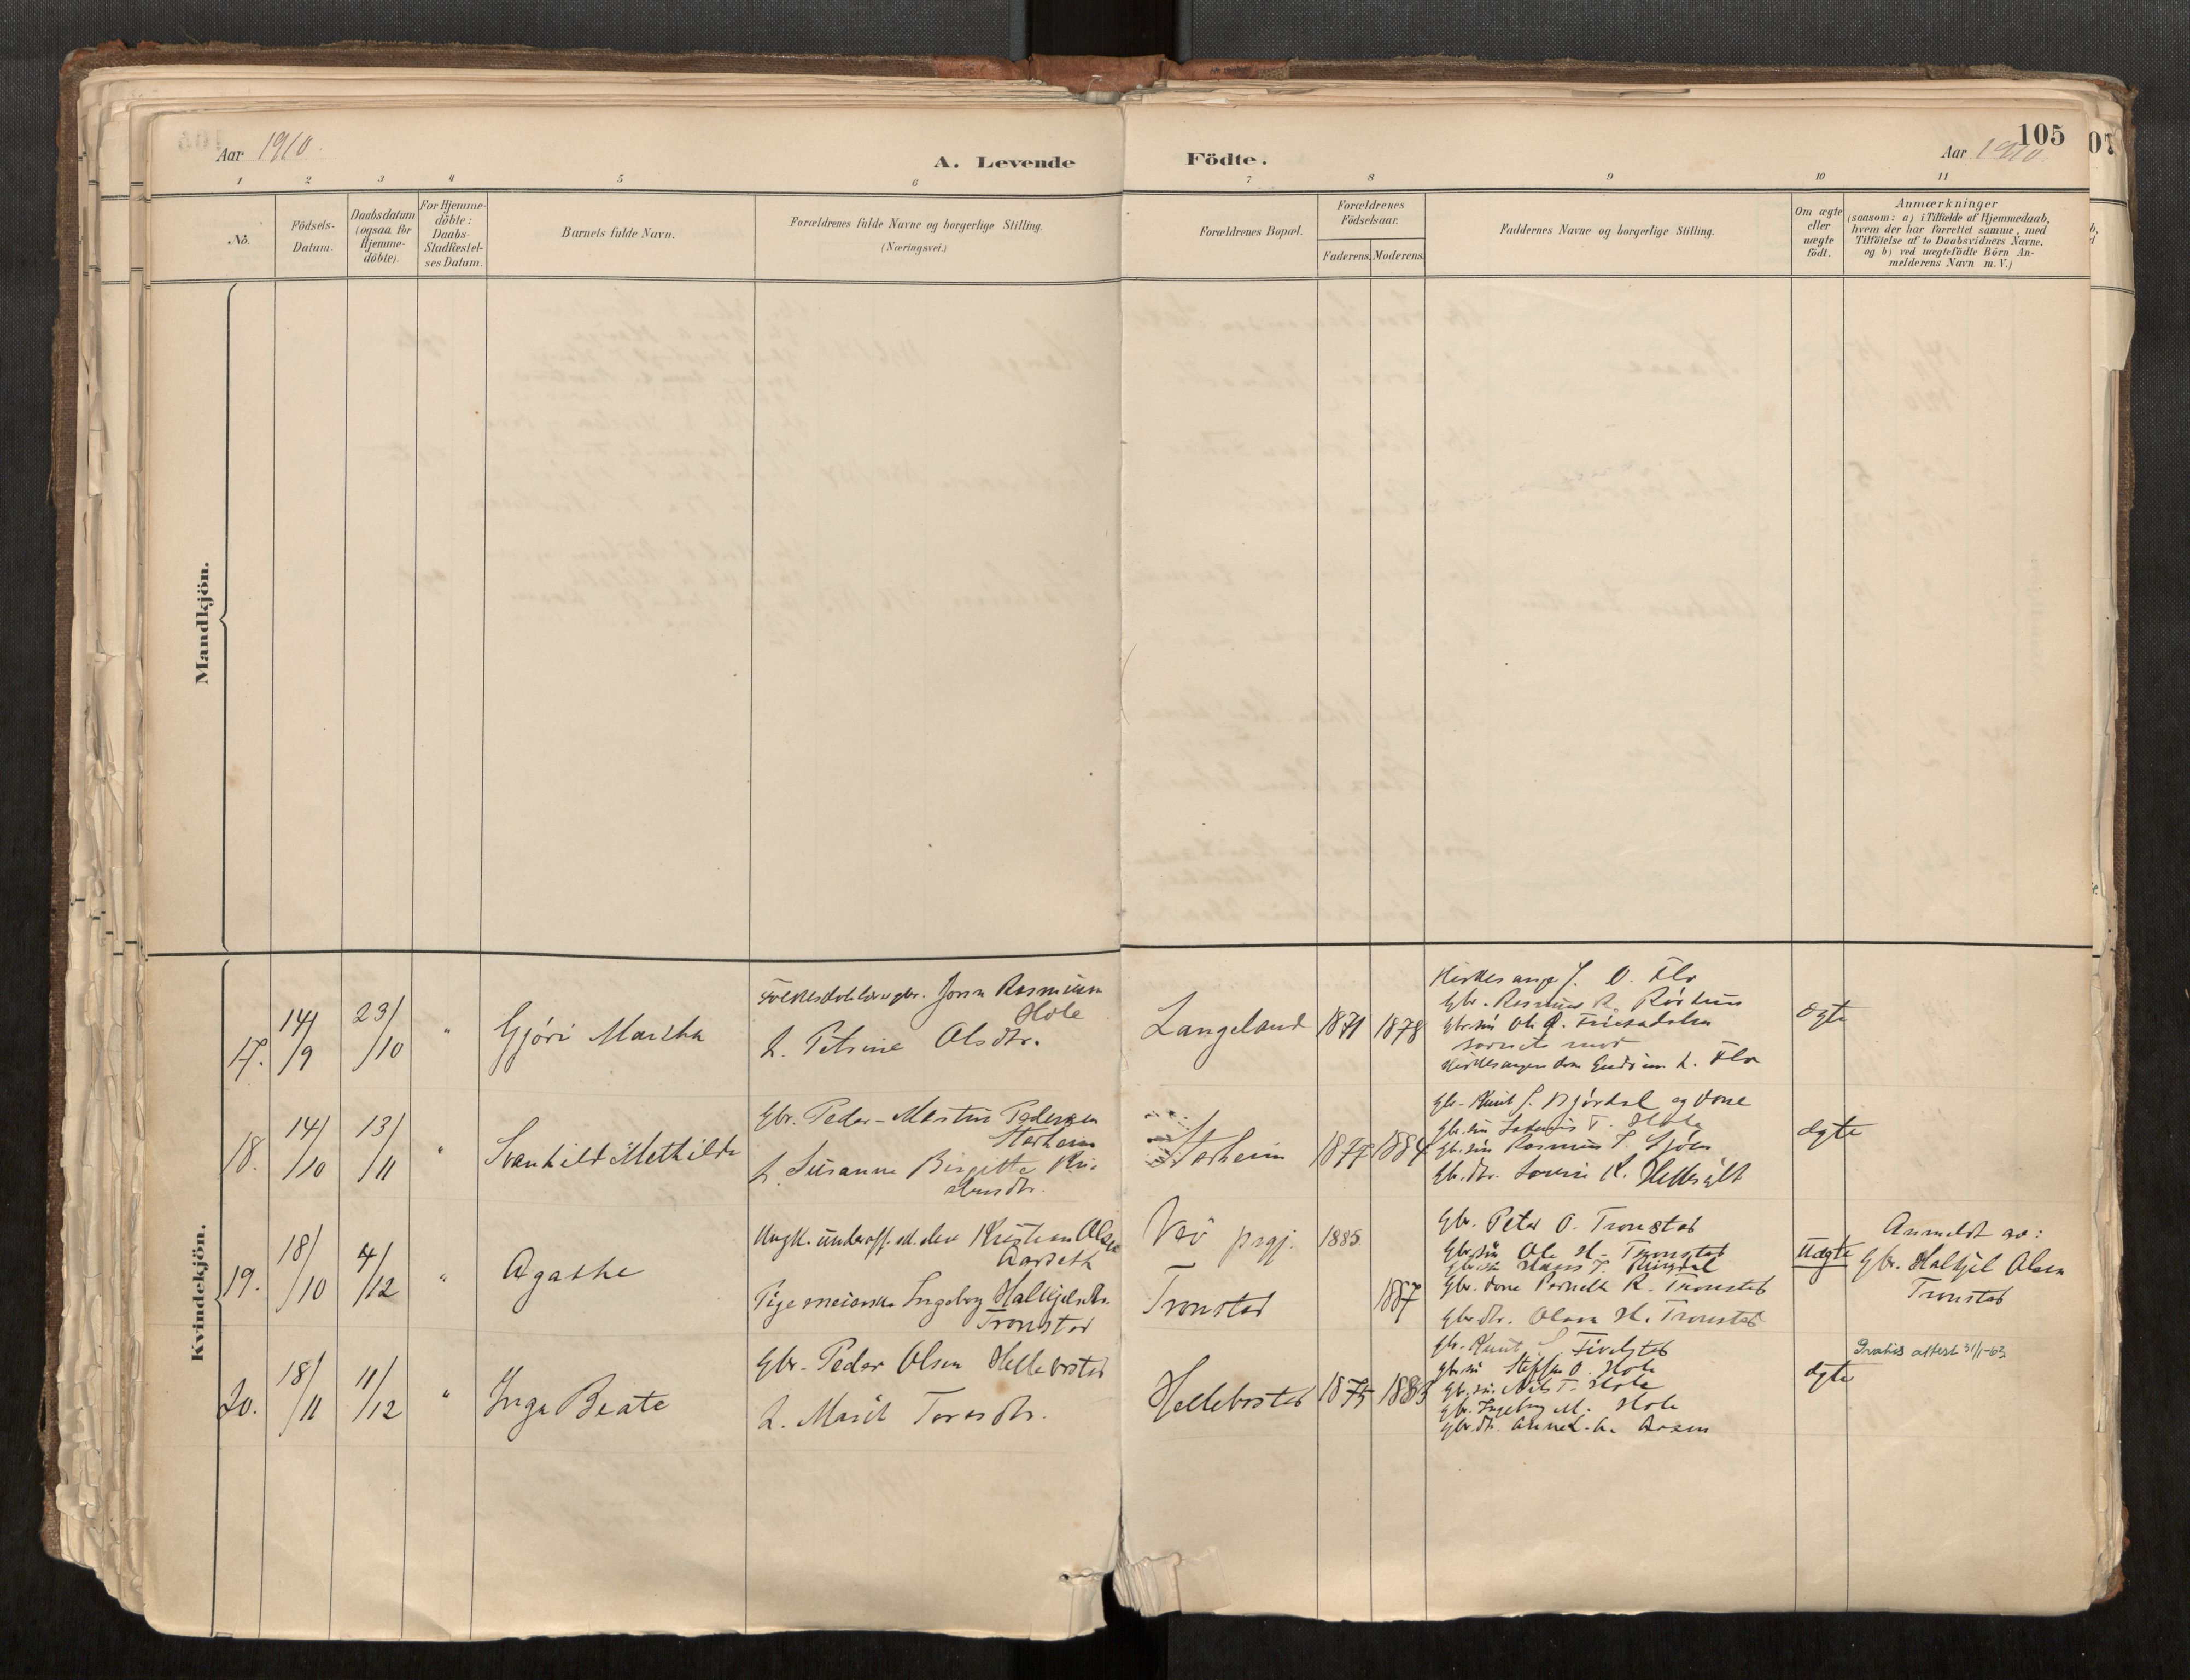 105
07
Aar 1910.
A. Levende
Födte.
Aar 1910.
1 2 3 4 5 6 7 8 9 10 11
No.
Födsels-
Datum.
Daabsdatum
(ogsaa for
Hjemme-
döbte).
For Hjemme-
döbte:
Daabs-
Stadfæstel-
ses Datum.
Barnets fulde Navn.
Forældrenes fulde Navne og borgerlige Stilling.
(Næringsvei.)
Forældrenes Bopæl.
Forældrenes
Födselsaar.
Faderens.
Moderens.
Faddernes Navne og borgerlige Stilling.
Om ægte
eller
uægte
födt.
Anmærkninger
(saasom: a) i Tilfælde af Hjemmedaab,
hvem der har forrettet samme, med
Tilföielse af to Daabsvidners Navne,
og b) ved uægtefödte Börn An-
melderens Navn m. V.)
Mandkjön.
Kvindekjön.
17.
14/9
23/10
"
Gjöri Martha
Rasmussen
Hole
h. Petrine Olsdtr.
Langeland
1871
1878
O. Flo
Gbr. Rasmus R.
Flo
ægte
18.
14/10
13/11
"
Svanhild Methilde
Gbr. Peder-Martin Pedersen
Starheim
h. Susanne Birgitte Kri-
stensdtr.
Starheim
1877
1884
Gbr. Knut J. Bjørdal og kone
Hole
Gbr. sön Rasmus
Gbr. dtr. Lovise K. Hellesylt
ægte
19.
18/10
4/12
"
Agathe
Ungk. Kristian Olsen
Aarseth
Pige Ingeborg Halkjelsdtr.
Tronstad
prgj.
Tronstad
1885.
1887
Gbr. Peter O. Tronstad
Gbr. sön Ole H. Tronstad
Hans J. Ringdal
Gbr. kone Pernille R. Tronstad
Gbr. dtr. Olava H. Tronstad
Uægte
Anmeldt av:
Gbr. Halkjel Olsen
Tronstad
20.
18/11
11/12
"
Inga Beate
Gbr. Peder Olsen Hellebostad
h. Marit Toresdtr.
Hellebostad
1875
1883
Gbr. Knut Fivelstad
Gbr. sön Steffen O. Hole
Gbr. sön. Nils T. Hole
Gbr. Ingeborg M. Hole
Gbr. dtr.
ægte
Gratis attest 31/1-63